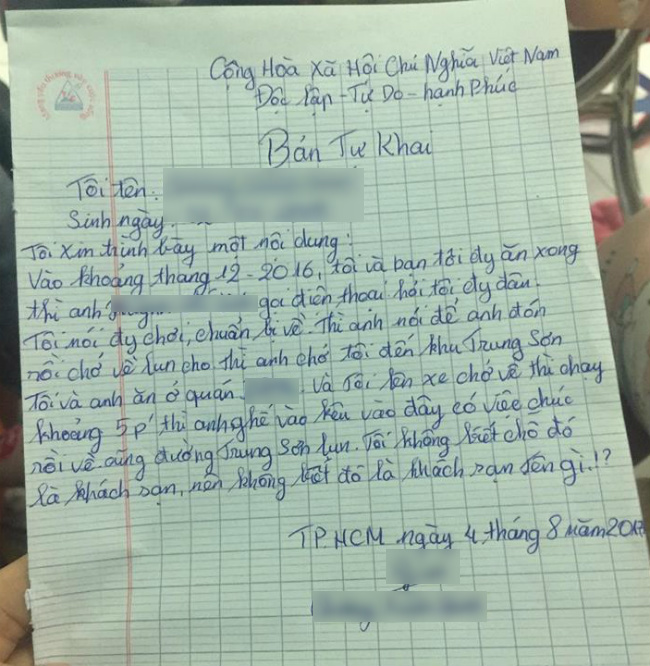 Cộng Hòa Xã Hội Chủ Nghĩa Việt Nam
Độc lập - Tự Do - hạnh Phúc
Bản Tự Khai
Tôi tên:
Sinh ngày:
Tôi xin trình bày một nội dung:
Vào khoảng tháng 12-2016, tôi và bạn tôi đy ăn xong
thì anh gọi điện thoại hỏi tôi đy đâu.
Tôi nói đy chơi, chuẩn bị về. Thì anh nói để anh đón
rồi chở về lun cho. thì anh chở tôi đến khu Trung Sơn
Tôi và anh ăn ở quán. và Tôi lên xe chở về thì chạy
khoảng 5p' thì anh ghé vào kêu vào đây có việc chúc
rồi về cũng đường Trung Sơn lun. Tôi không biết chỗ đó
là khách sạn, nên không biết đó là khách sạn tên gì.!?
TP.HCM ngày 4 tháng 8 năm 2017